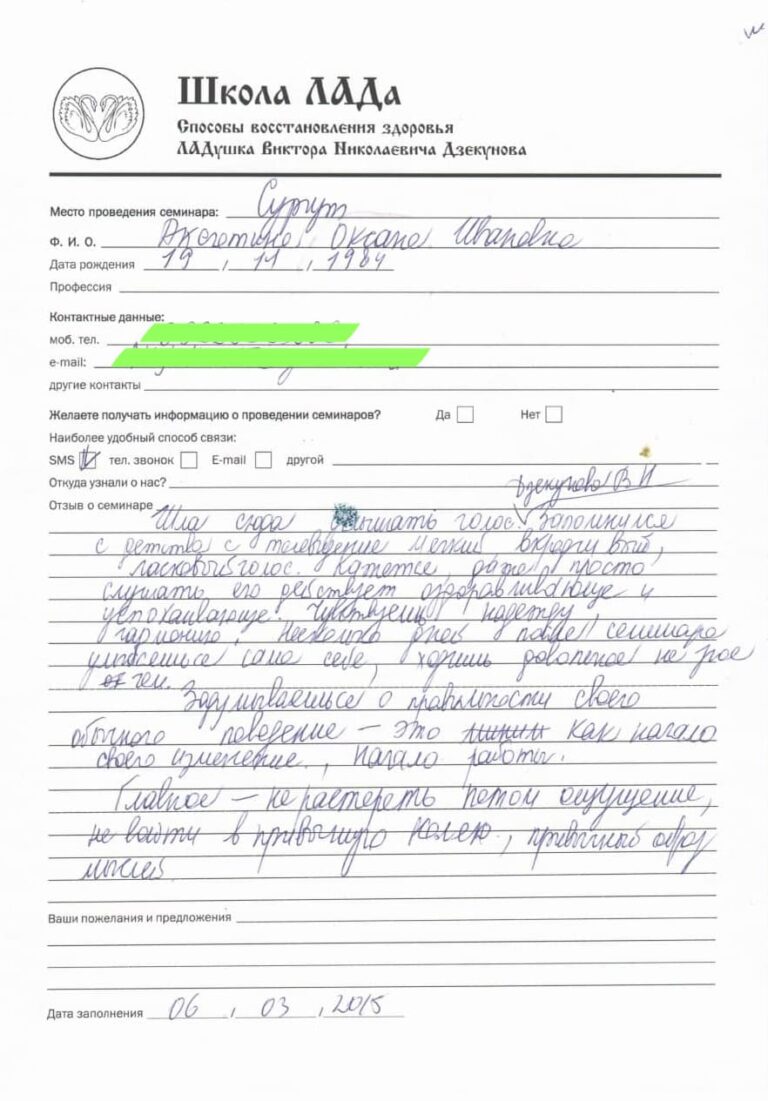 Школа ЛАДа
Способы восстановления здоровья
ЛАДушка Виктора Николаевича Дзекунова
Место проведения семинара: Сургут
Ф. И. О. Оксана Ивановна
Дата рождения 19 , 11 , 1984
Профессия
Контактные данные:
моб. тел.
e-mail:
другие контакты
Желаете получать информацию о проведении семинаров? Да Нет
Наиболее удобный способ связи:
SMS тел. звонок E-mail другой
Откуда узнали о нас?
Дзекунова В И
Отзыв о семинаре
Шла сюда слышать голос. Запомнился
с детства с телевидение мягкий вкрадчивый,
ласковый голос. Кажется, даже просто
слушать его действует оздоравливающе и
успокаивающе. Чувствуешь надежду,
гармонию. Несколько дней после семинара
улыбаешься сама себе, ходишь довольное не зная
от чего.
Задумываешься о правильности своего
обычного поведение – это как начало
своего изменение, начало работы.
Главное – не растереть потом ощущение,
не войти в привычную колею, привычный образ
мыслей.
Ваши пожелания и предложения
Дата заполнения 06 , 03 , 2015